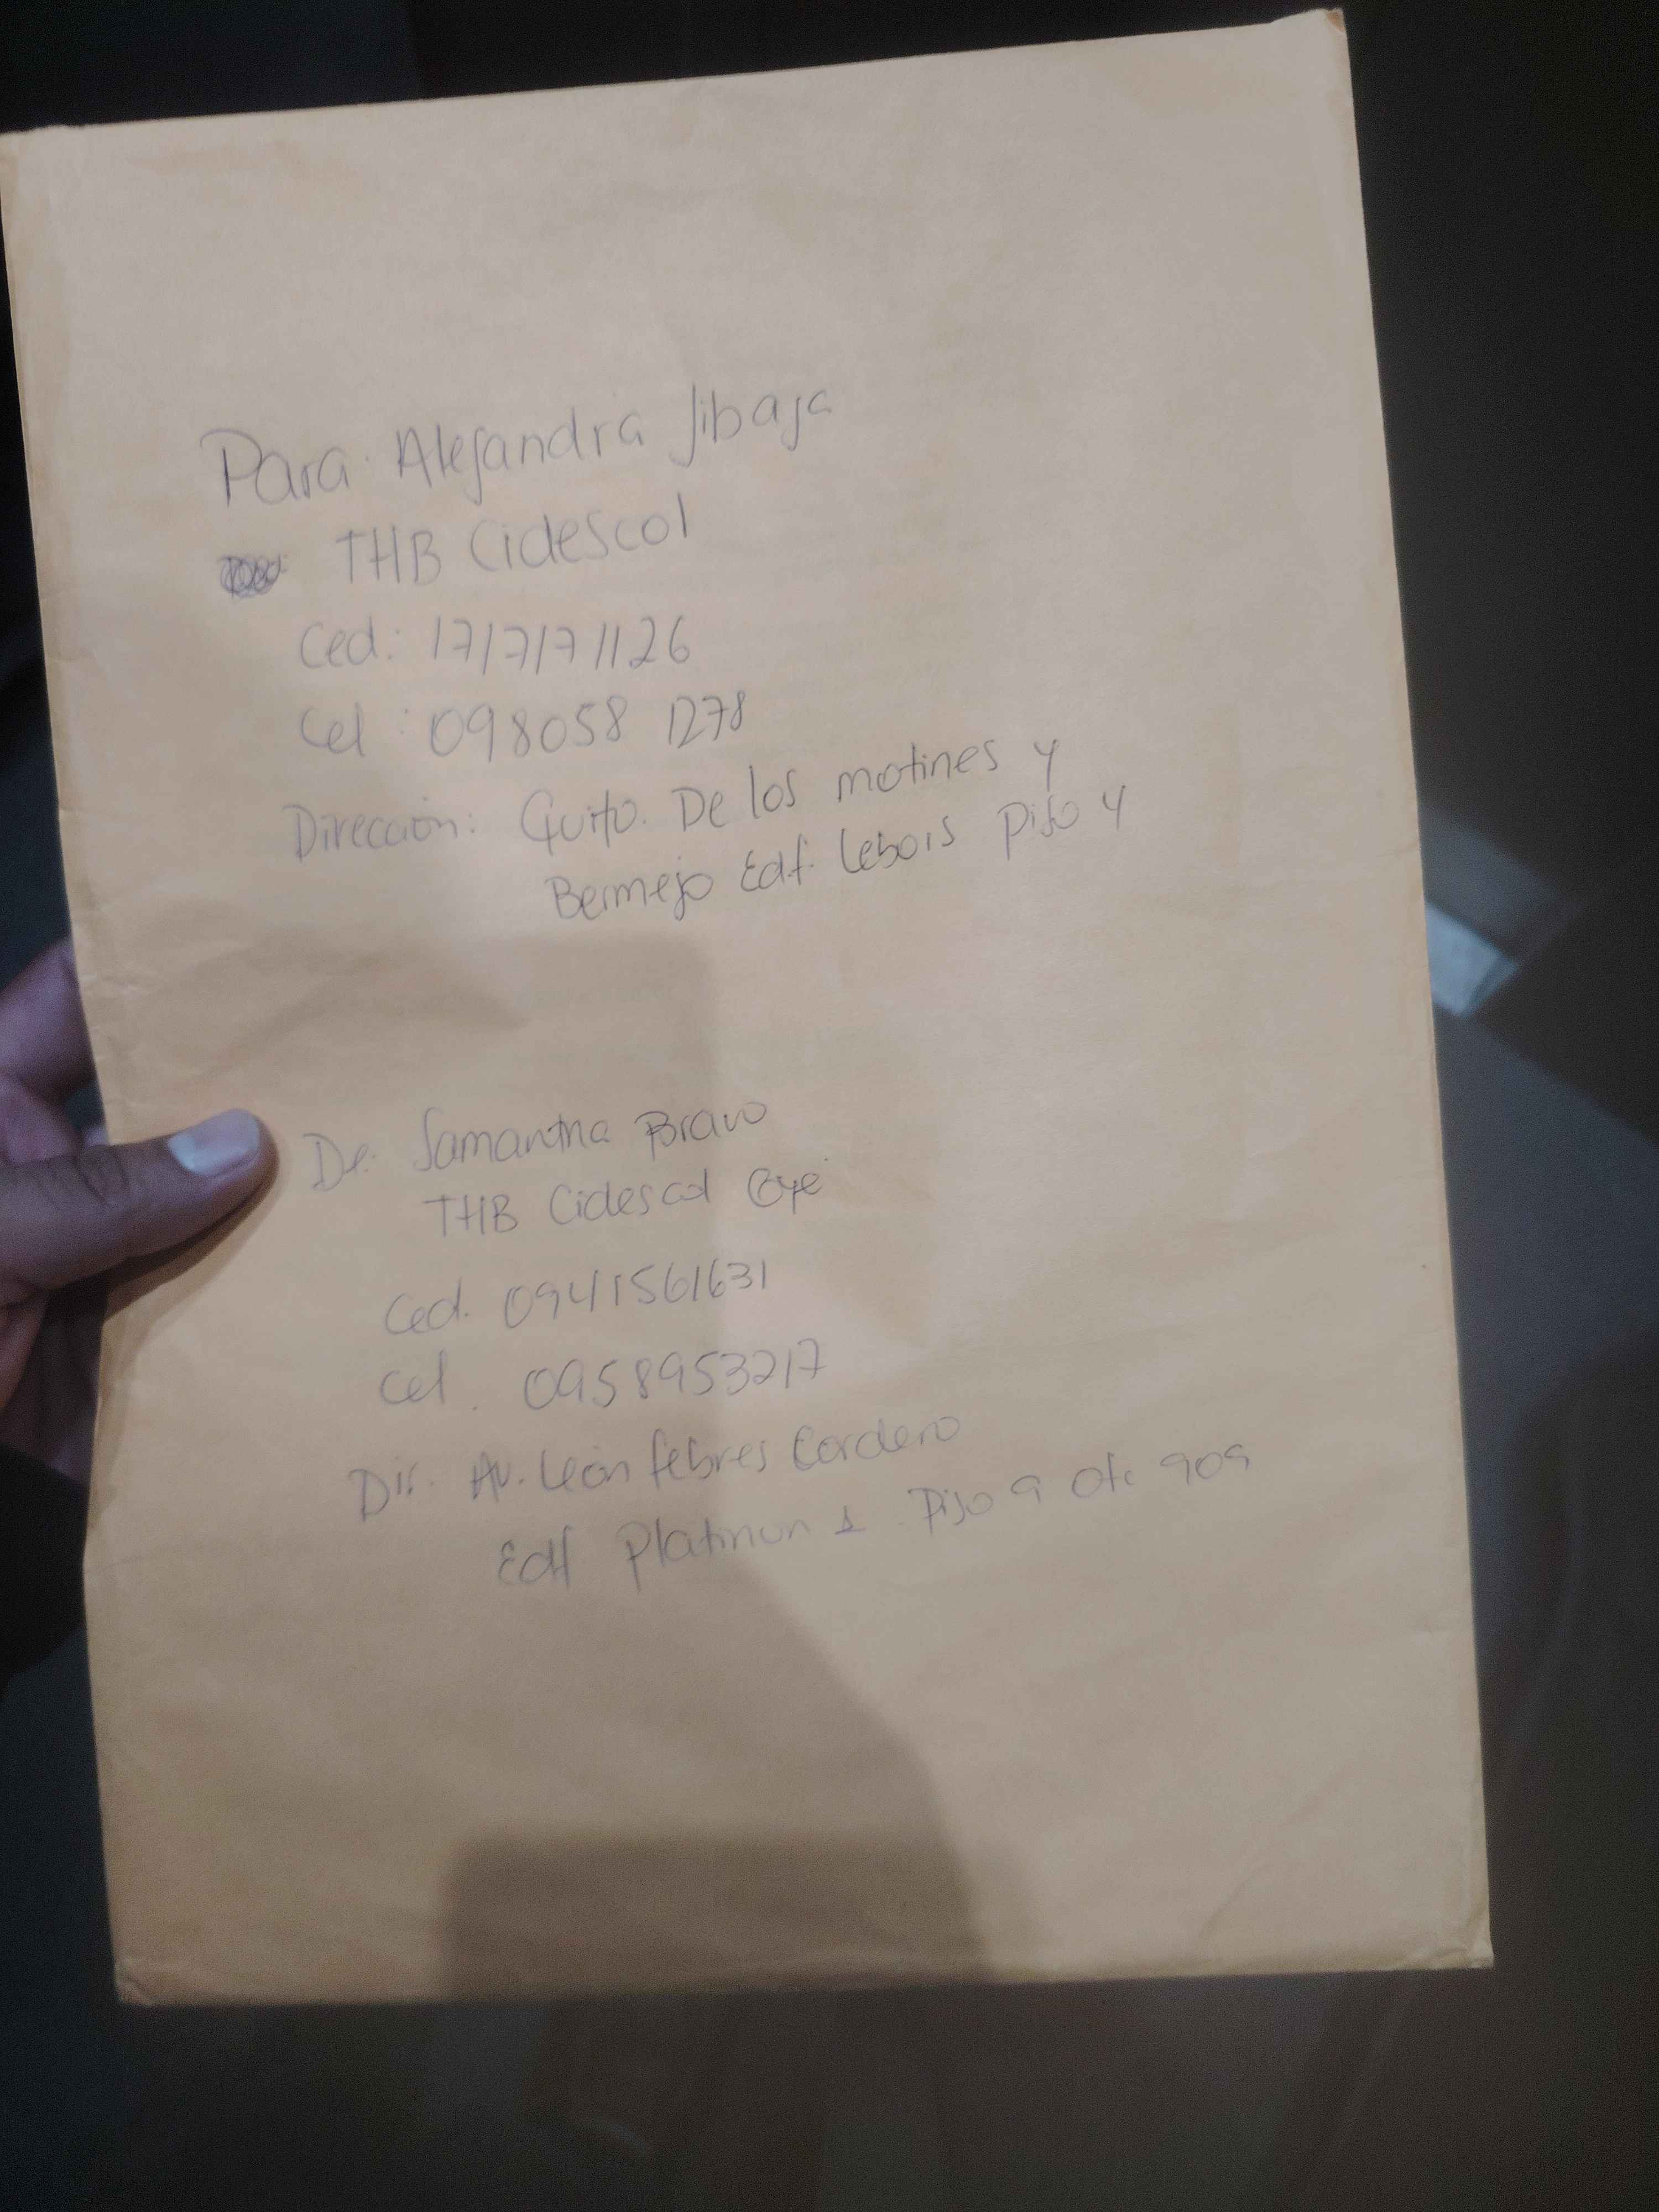 Para: Alejandra Jibaja
THB Cidescol
Ced: 1717171126
Cel: 098058 1278
Dirección: Quito. De los motines y
Bermejo Edf. Lebois Piso 4
De: Samantha Bravo
THB Cidescol Gye
Ced. 0941561631
Cel. 0958953217
Dir. Av. León Febres Cordero
Edif Platinun 1. Piso 9 Ofc 909